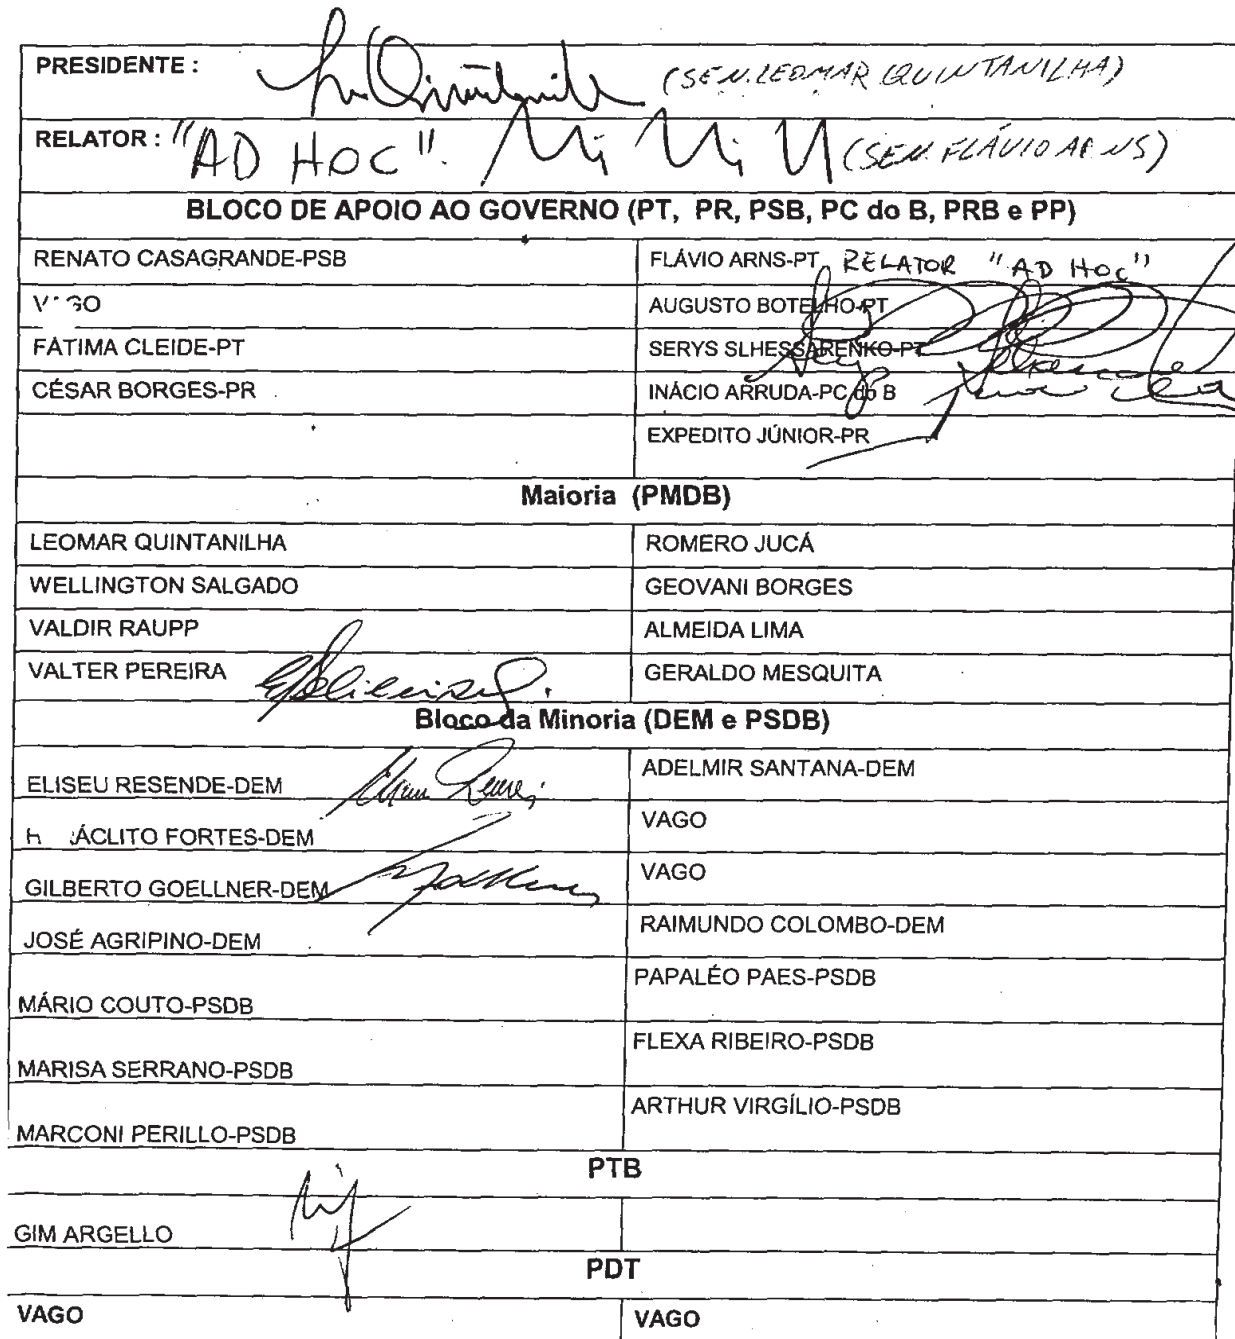 PRESIDENTE : (SEN. LEOMAR QUINTANILHA)
RELATOR : "AD HOC". (SEN. FLÁVIO ARNS)
BLOCO DE APOIO AO GOVERNO (PT, PR, PSB, PC do B, PRB e PP)
RENATO CASAGRANDE-PSB FLÁVIO ARNS-PT RELATOR "AD HOC"
AUGUSTO BOTELHO-PT
FÁTIMA CLEIDE-PT SERYS SLHESSARENKO-PT
CÉSAR BORGES-PR INÁCIO ARRUDA-PC do B
EXPEDITO JÚNIOR-PR
Maioria (PMDB)
LEOMAR QUINTANILHA ROMERO JUCÁ
WELLINGTON SALGADO GEOVANI BORGES
VALDIR RAUPP ALMEIDA LIMA
VALTER PEREIRA GERALDO MESQUITA
Bloco da Minoria (DEM e PSDB)
ELISEU RESENDE-DEM ADELMIR SANTANA-DEM
FORTES-DEM VAGO
GILBERTO GOELLNER-DEM VAGO
JOSÉ AGRIPINO-DEM RAIMUNDO COLOMBO-DEM
MÁRIO COUTO-PSDB PAPALÉO PAES-PSDB
MARISA SERRANO-PSDB FLEXA RIBEIRO-PSDB
MARCONI PERILLO-PSDB ARTHUR VIRGÍLIO-PSDB
PTB
GIM ARGELLO
PDT
VAGO VAGO